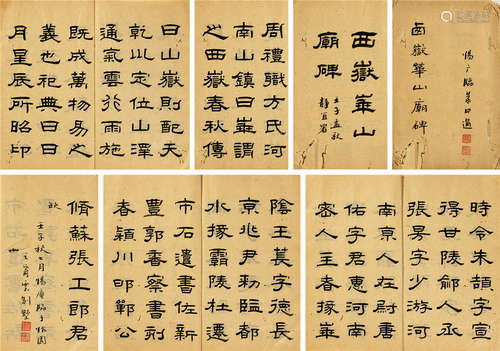 西嶽華山廟碑
壬子孟秋
周禮職方氏河
南山鎮曰華謂
之西嶽春秋傳
曰山嶽則配天
乾巛定位山澤
通氣雲行雨施
既成萬物易之
義也祀典曰日
月星辰所昭卬
時令朱頡字宣
得甘陵鄃人丞
張昉字少游河
南京人左尉唐
佑字君惠河南
密人主者掾華
陰王萇字德長
京兆尹勑監都
水掾霸陵杜遷
市石遺書佐新
豐郭香察書刻
者潁川邯鄲公
脩蘇張工郎君
壬子秋七月